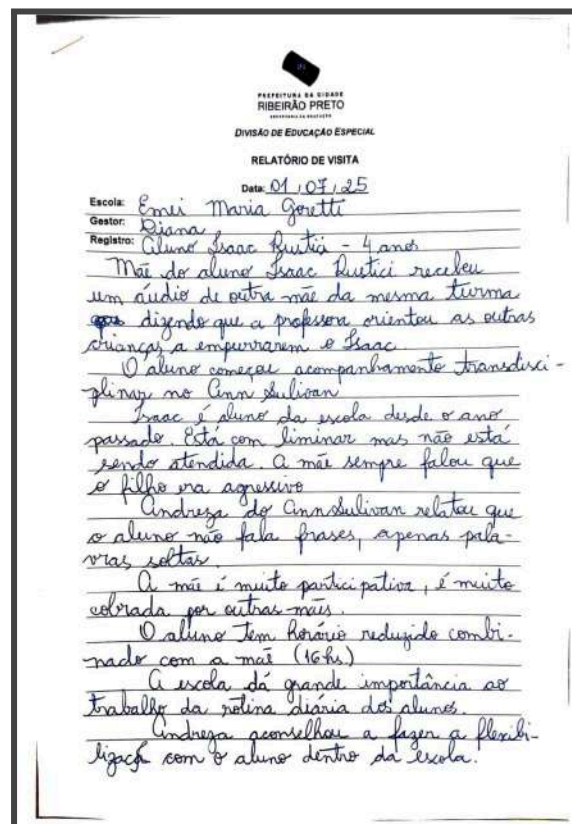 PREFEITURA DA CIDADE
RIBEIRÃO PRETO
SECRETARIA DA EDUCAÇÃO
DIVISÃO DE EDUCAÇÃO ESPECIAL
RELATÓRIO DE VISITA
Data: 01/07/25
Escola: Emei Maria Goretti
Gestor: Diana
Registro: Aluno Isaac Rustici - 4 anos
Mãe do aluno Isaac Rustici recebeu
um áudio de outra mãe da mesma turma
dizendo que a professora orientou as outras
crianças a empurrarem o Isaac
O aluno começou acompanhamento transdisci-
plinar no Ann Sulivan
Isaac é aluno da escola desde o ano
passado. Está com liminar mas não está
sendo atendida. A mãe sempre falou que
o filho era agressivo
Andreza do Ann Sulivan relatou que
o aluno não fala frases, apenas pala-
vras soltas.
A mãe é muito participativa, é muito
cobrada por outras mães.
O aluno tem horário reduzido combi-
nado com a mãe (16hs.)
A escola dá grande importância ao
trabalho da rotina diária dos alunos.
Andreza aconselhou a fazer a flexibi-
lização com o aluno dentro da escola.